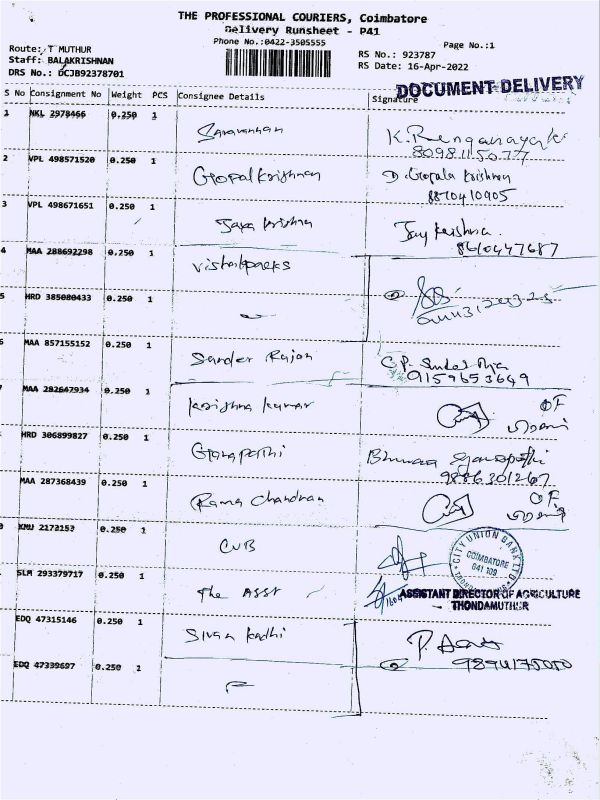 THE PROFESSIONAL COURIERS, Coimbatore
Delivery Runsheet - P41
Phone No.:0422-3505555
Page No.:1
Route: T MUTHUR
Staff: BALAKRISHNAN
DRS No.: DCJB92378701
RS No.: 923787
RS Date: 16-Apr-2022
DOCUMENT DELIVERY
S No Consignment No Weight PCS Consignee Details Signature
1 NKL 2978466 0.250 1 Saravanan K. Renganayaki
8098115077
2 VPL 498571520 0.250 1 Gopal Krishnan D. Gopala Krishnan
8870410905
3 VPL 498671651 0.250 1 Jaya Krishna Jay Krishna
8610447687
4 MAA 288692298 0.250 1 vishalpacks
5 HRD 385080433 0.250 1
6 MAA 857155152 0.250 1 Sander Rajan
9159653649
MAA 282647934 0.250 1 Krishna Kumar OF
HRD 306899827 0.250 1 Ganapathi
9886301267
MAA 287368439 0.250 1 Rama Chandran OF
KMU 2173153 0.250 1 CUB
CITY UNION BANK LTD
COIMBATORE
641 109
SLM 293379717 0.250 1 The ASST
ASSISTANT DIRECTOR OF AGRICULTURE
THONDAMUTHUR
EDQ 47315146 0.250 1 Sivan Kadhi
9894175050
EDQ 47339697 0.250 1